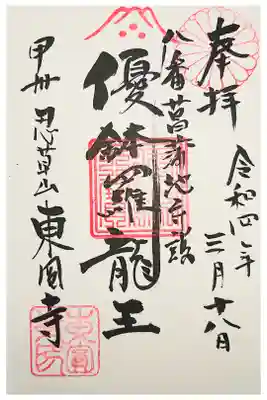 奉拝
令和四年三月十八日
八番菖蒲池守護
優鉢羅龍王
甲州忍草山東圓寺